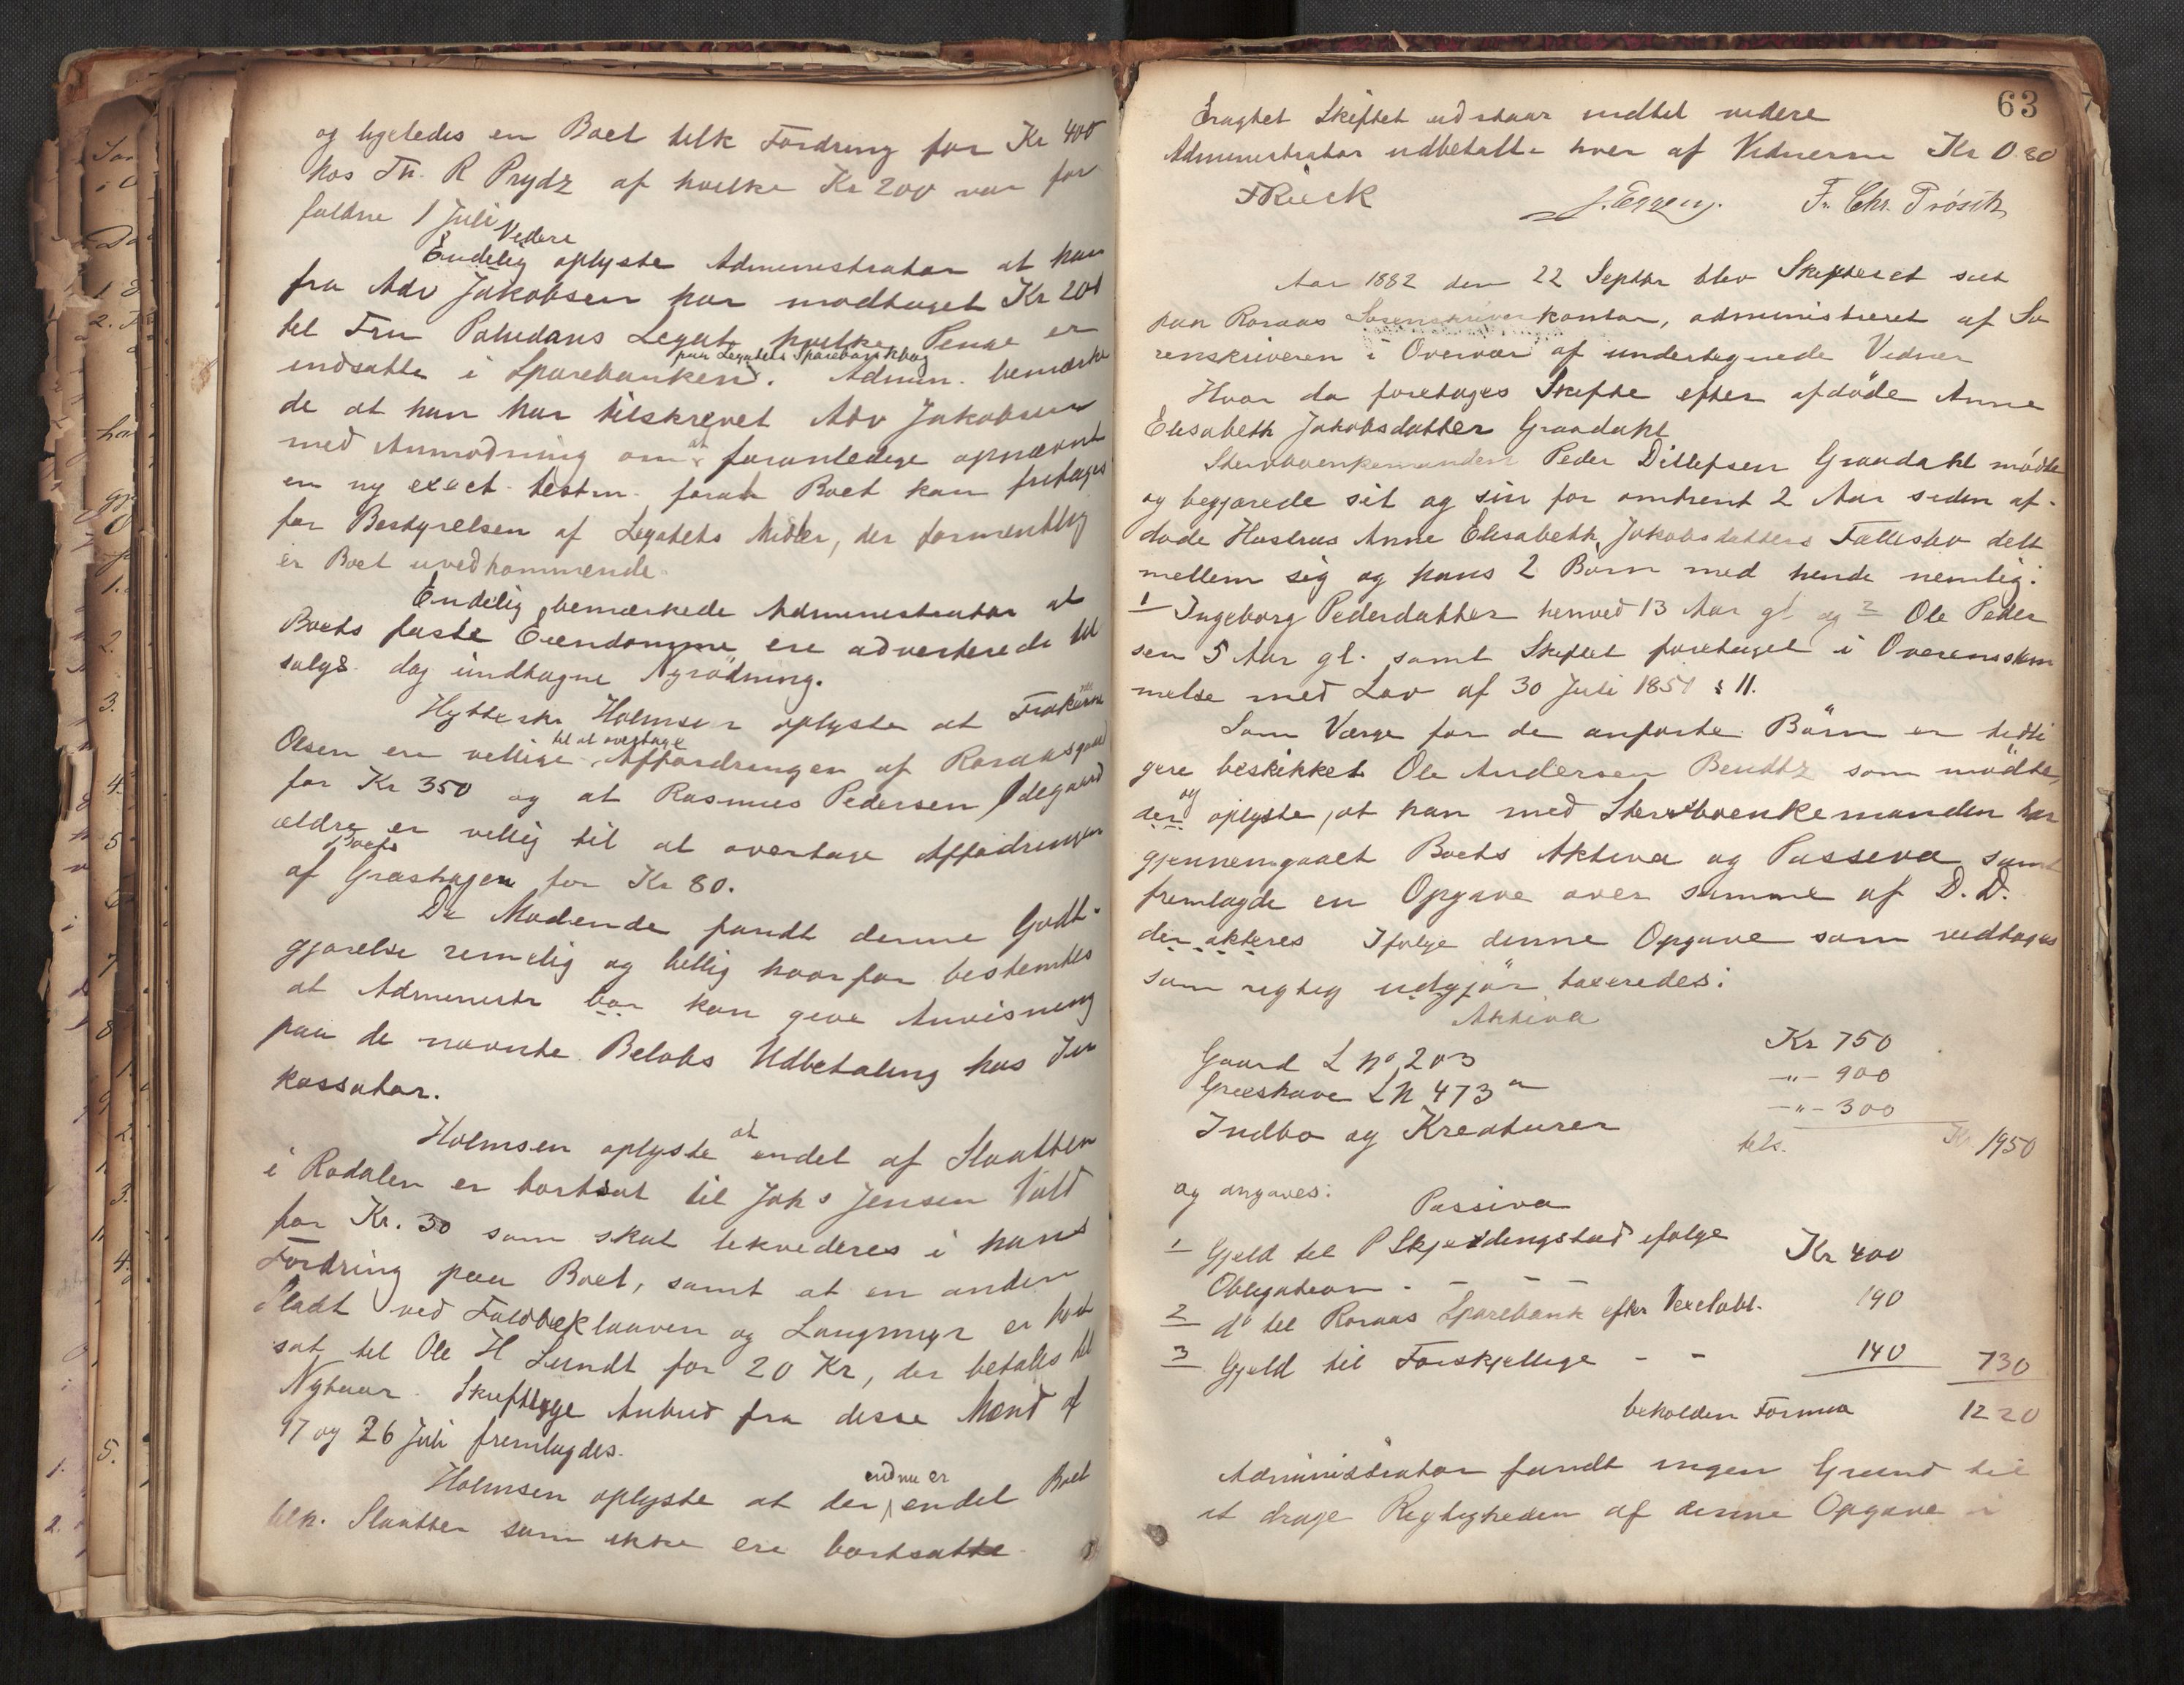 og ligeledes en Boet tilk Fordring for Kr 400
hos Th. R Prydz af hvilke Kr 200 var for
faldne 1 Juli
Videre
Endelig oplyste Administrator at han
fra Adv Jakobsen har modtaget Kr 200
til Fru Paludans Legat, hvilke Penge er
paa Legatets Sparebankbog
indsatte i Sparebanken. Admin. bemærke
de at han har tilskrevet Adv Jakobsen
med Anmodning om at foranledige opnævnt
en ny exect. testm. forat Boet kan fritages
for Bestyrelsen af Legatets Midler, der formentlig
er Boet uvedkommende.
Endelig bemærkede Administrator at
Boets faste Eiendomme ere adverterede til
salgs dog undtagne Nyrödning.
Hytteskr Holmsen oplyste at Frøknerne
Olsen ere villige til at overtage Affordringen af Rorosgaard
for Kr 350 og at Rasmus Pedersen Ødegaard
ældre er villig til at overtage Affodringen
af Boets Græshagen for Kr 80.
De Mødende fandt denne Godt-
gjørelse rimelig og billig hvorfor bestemtes
at Administr bor kan give Anvisning
paa de nævnte Belobs Udbetaling hos In
kassator.
Holmsen oplyste at endel af Slaatten
i Rodalen er bortsat til Johs Jensen Vold
for Kr. 30 som skal likvideres i hans
Fordring paa Boet, samt at en anden
Sladt ved Foldbæklaaven og Langmyr er bort
sat til Ole H Lundt for 20 Kr, der betales til
Nytaar. Skriftlige Anbud fra disse Mænd af
17 og 26 Juli fremlagdes.
Holmsen oplyste at der endnu er endel Boet
tilh. Slaatter som ikke ere bortsatte
63
Eragtet Skiftet udstaar indtil videre
Administrator udbetalte hver af Vidnerne Kr 0.80
FRieck J. Eggen. Fr. Chr. Prösch
Aar 1882 den 22 Septbr blev Skifteret sat
paa Roraas Sorenskriverkontor, administreret af So
renskriveren i Overvær af undertegnede Vidner
Hvor da foretoges Skifte efter afdøde Anne
Elisabeth Jakobsdatter Graadahl
Stervboenkemanden Peder Ditlefsen Graadahl mödte
og begjærede sit og sin for omtrent 2 Aar siden af-
døde Hustrus Anne Elisabeth Jakobsdatters Fællesbo delt
mellem sig og hans 2 Børn med hende nemlig:
1 Ingeborg Pedersdatter henved 13 Aar gl og 2 Ole Peder
sen 5 Aar gl. samt Skiftet foretaget i Overensstem
melse med Lov af 30 Juli 1851 § 11.
Som Værge for de anførte Börn er tidli
gere beskikket Ole Andersen Bendtz som mødte,
der og oplyste, at han med Stervboenkemanden har
gjennemgaaet Boets Aktiva og Passiva samt
fremlagde en Opgave over samme af D. D.
der akteres Ifølge denne Opgave som vedtoges
som rigtig udgjör taxeredes:
Aktiva
Gaard L No 203 Kr 750
Græshave LN 473 a -"- 900
Indbo og Kreaturer -"- 300
tils. Kr. 1950
og angaves:
Passiva
1 Gjeld til P Skjeldingstad ifølge
Obligation - - - - Kr 400
2 do til Roraas Sparebank efter Vexelobl. 190
3 Gjeld til Forskjellige - - 140 730
beholden Formue 1220
Administrator fandt ingen Grund til
at drage Rigtigheden af denne Opgave i